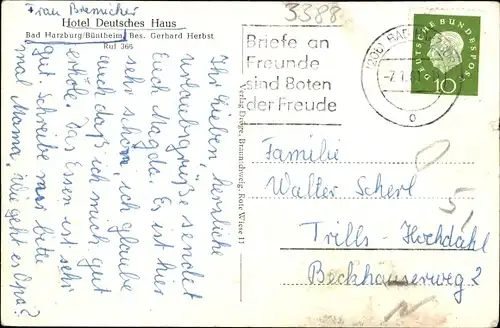 Frau Bremicher
Hotel Deutsches Haus
Bad Harzburg/Bündheim, Bes. Gerhard Herbst
Ruf 366
Ihr Lieben, herzliche
Urlaubsgrüße sendet
Euch Magda. Es ist hier
sehr schön, ich glaube
auch daß ich mich gut
erhole. Das Essen ist sehr
gut. Schreibe mir bitte
mal Mama, wie geht es Opa?
Verlag Dröge, Braunschweig, Rote Wiese 11
3388
Briefe an
Freunde
sind Boten
der Freude
DEUTSCHE BUNDESPOST
10
Familie
Walter Scherl
Trills-Hochdahl
Beckhauserweg 2